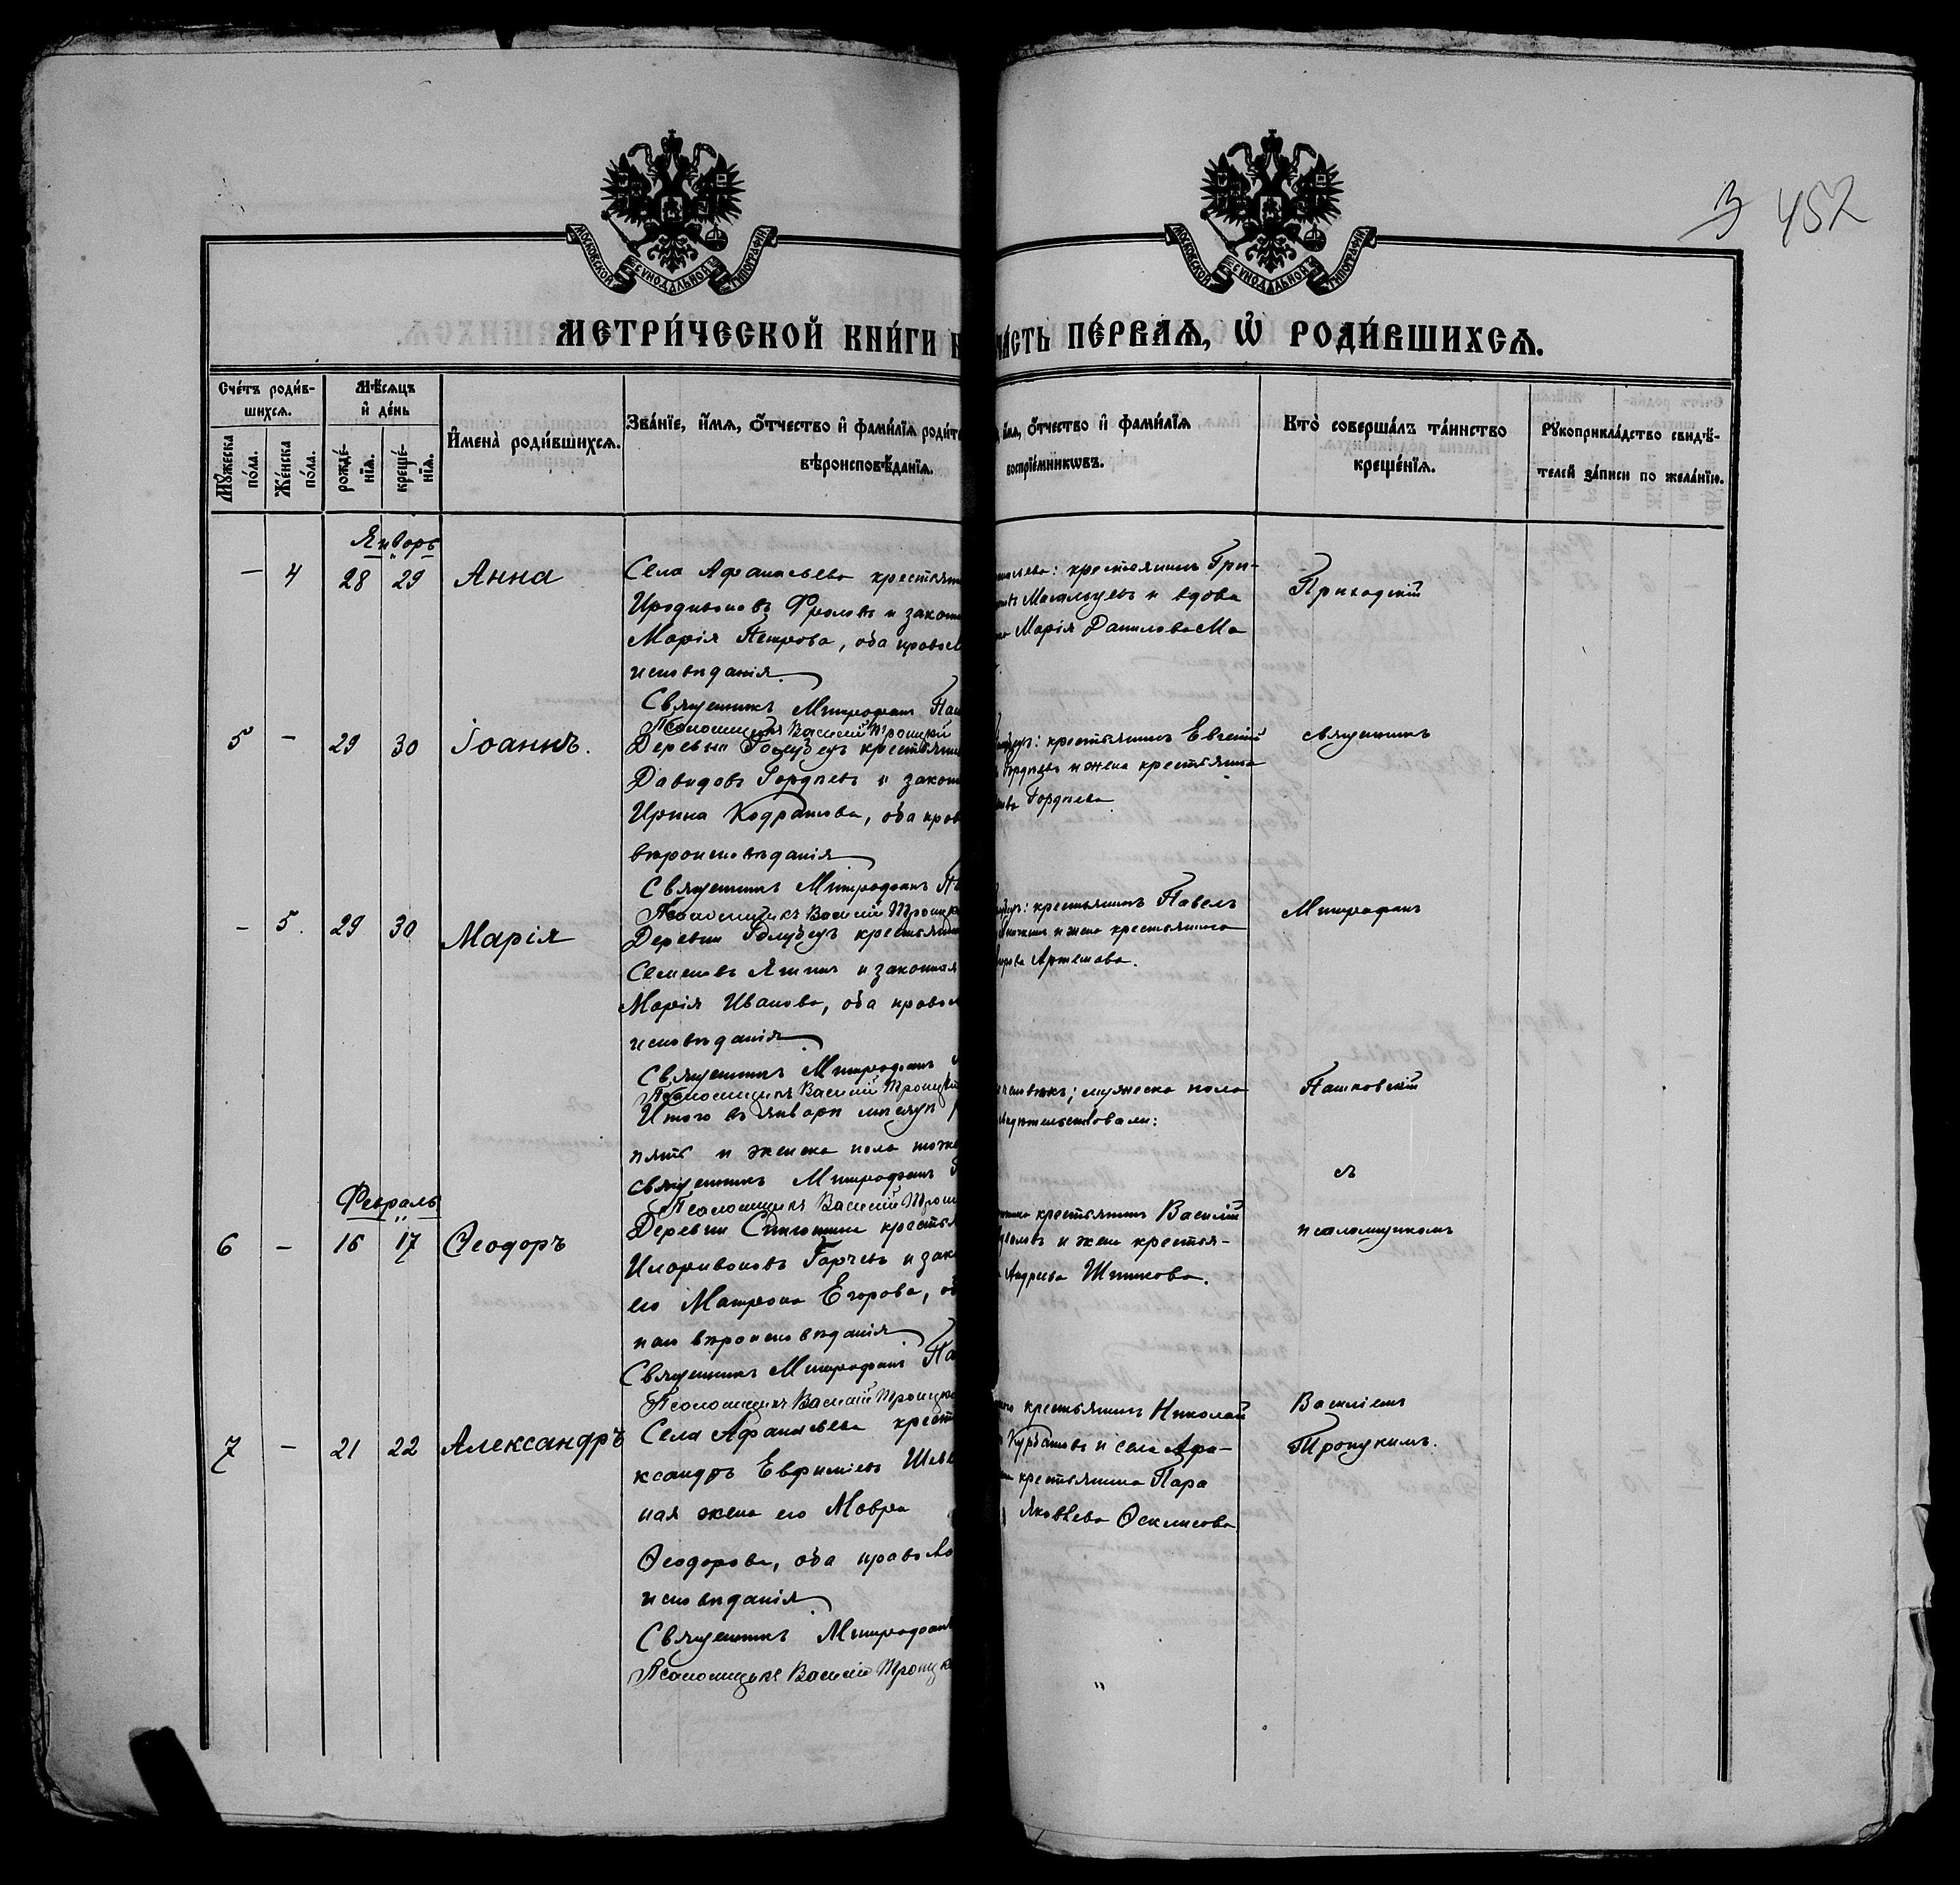 3 452
МОСКОВСКОЙ СѴНОДАЛЬНОЙ ТИПОГРАФІИ
МОСКОВСКОЙ СѴНОДАЛЬНОЙ ТИПОГРАФІИ
МЕТРИ́ЧЕСКОЙ КНИ́ГИ
ЧА́СТЬ ПЕ́РВАѦ, Ѡ҆ РОДИ́ВШИХСѦ.
Сче́тъ роди́в-
шихсѧ.
Мꙋ́жеска по́ла.
Же́нска по́ла.
Мѣ́сѧцъ
и҆ де́нь
рожде́-
нїѧ.
креще́-
нїѧ.
И҆мена̀ роди́вшихсѧ.
Зва́нїе, и҆́мѧ, ѻ҆́тчество и҆ фами́лїѧ роди́т
вѣроисповѣ́данїѧ.
и҆́мѧ, ѻ҆́тчество и҆ фами́лїѧ
воспрїе́мникѡвъ.
Кто̀ соверша́лъ та́инство
креще́нїѧ.
Рꙋкоприкла́дство свидѣ́-
телей за́писи по жела́нїю.
Январь
— 4 28 29 Анна
Села Афанасьева крестьян
Иродионовъ Фроловъ и закон
Марія Петрова, оба правосл
исповѣданія.
Священникъ Митрофанъ Паш
Псаломщикъ Василій Троицкій
крестьянинъ Гри-
и вдова
Марія Данилова Ма
Приходскій
5 — 29 30 Іоаннъ.
Деревни Голубецъ крестьянин
Давидовъ Гордѣевъ и закон
Ирина Кодратова, оба прав
вѣроисповѣданія
Священникъ Митрофанъ П
Псаломщикъ Василій Троицк
крестьянинъ Евгеній
Гордѣевъ и жена крестьянина
Гордѣева
священникъ
— 5. 29 30 Марія
Деревни Голубецъ крестьянин
Семеновъ и законная
Марія Иванова, оба правосл
исповѣданія
Священникъ Митрофанъ
Псаломщикъ Василій Троицкій
крестьянинъ Павелъ
и жена крестьянина
Артемова.
Митрофанъ
Итого въ январѣ мѣсяцѣ
пять и женска пола тоже
священникъ Митрофанъ
Псаломщикъ Василій Трои
мужеска пола
свидѣтельствовали:
Пашковскій
съ
Февраль
6 — 16 17 Ѳеодоръ
Деревни крестья
Иларіоновъ и зак
его Матрона Егорова, об
ное вѣроисповѣданія
Священникъ Митрофанъ Па
Псаломщикъ Василій Троицк
крестьянинъ Василій
и жена крестья-
Андреева
псаломщикомъ
7 — 21 22 Александръ
Села Афанасьева крест
ксандръ Евфиміевъ
ная жена его Мавра
Ѳеодорова, оба правосла
исповѣданія
Священникъ Митрофанъ
Псаломщикъ Василій Троицк
крестьянинъ Николай
Курбатовъ и села Афа-
крестьянина Пара
Яковлева
Василіемъ
Троицкимъ.